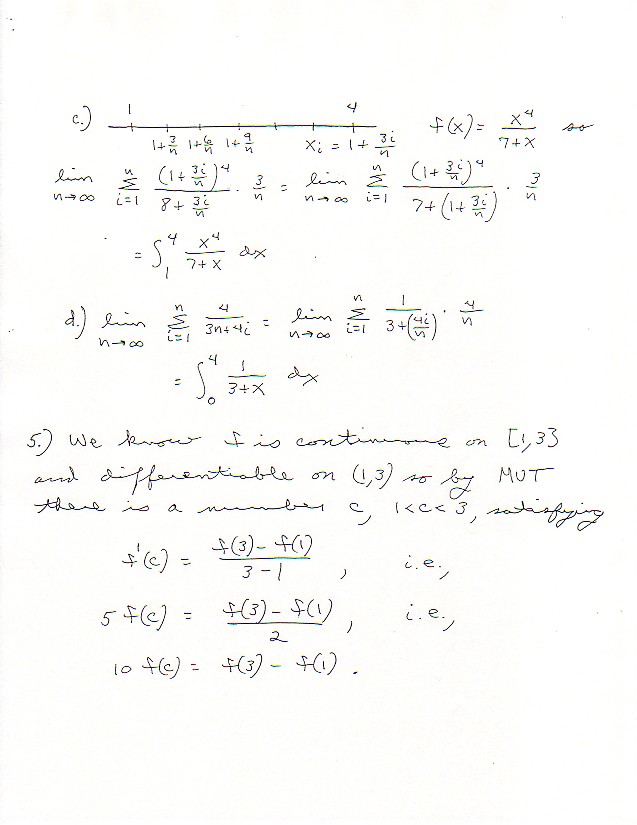 c.) 1 4 f(x) = x^4/(7+x) so
1+3/n 1+6/n 1+9/n x_i = 1 + 3i/n
lim_{n→∞} Σ_{i=1}^{n} (1+3i/n)^4/(8+3i/n) · 3/n = lim_{n→∞} Σ_{i=1}^{n} (1+3i/n)^4/(7+(1+3i/n)) · 3/n
= ∫_1^4 x^4/(7+x) dx
d.) lim_{n→∞} Σ_{i=1}^{n} 4/(3n+4i) = lim_{n→∞} Σ_{i=1}^{n} 1/(3+(4i/n)) · 4/n
= ∫_0^4 1/(3+x) dx
5.) We know f is continuous on [1,3]
and differentiable on (1,3) so by MVT
there is a number c, 1<c<3, satisfying
f'(c) = (f(3) - f(1))/(3-1), i.e.,
5 f(c) = (f(3) - f(1))/2, i.e.,
10 f(c) = f(3) - f(1).